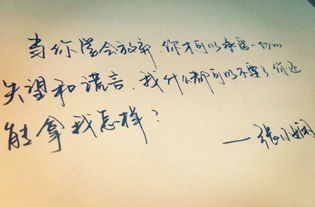 当你学会放弃 你才可以承受一切的
失望和谎言.我什么都可以不要了你还
能拿我怎样?
——张小娴